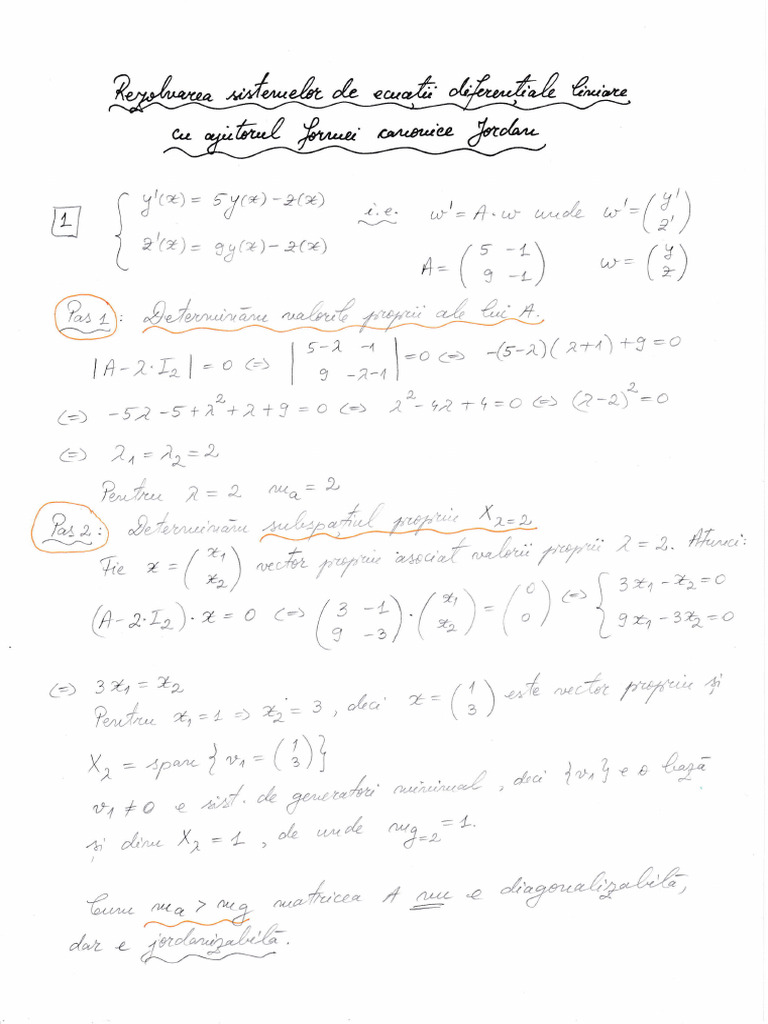 Rezolvarea sistemelor de ecuații diferențiale liniare
cu ajutorul formei canonice Jordan
1 { y'(x) = 5y(x) - z(x) i.e. w' = A·w unde w' = (y' z')
z'(x) = 9y(x) - z(x) A = (5 -1 9 -1) w = (y z)
Pas 1: Determinăm valorile proprii ale lui A.
|A - λ·I₂| = 0 (=) |5-λ -1 9 -λ-1| = 0 (=) -(5-λ)(λ+1) + 9 = 0
(=) -5λ - 5 + λ² + λ + 9 = 0 (=) λ² - 4λ + 4 = 0 (=) (λ-2)² = 0
(=) λ₁ = λ₂ = 2
Pentru λ = 2 mₐ = 2
Pas 2: Determinăm subspațiul propriu X_λ=2
Fie x = (x₁ x₂) vector propriu asociat valorii proprii λ = 2. Atunci:
(A - 2·I₂)·x = 0 (=) (3 -1 9 -3)·(x₁ x₂) = (0 0) (=) { 3x₁ - x₂ = 0 9x₁ - 3x₂ = 0
(=) 3x₁ = x₂
Pentru x₁ = 1 => x₂ = 3, deci x = (1 3) este vector propriu și
X_λ = span {v₁ = (1 3)}
v₁ ≠ 0 e sist. de generatori minimal, deci {v₁} e o bază
și dim X_λ = 1, de unde m_g=2 = 1.
Cum ma > mg matricea A nu e diagonalizabilă,
dar e jordanizabilă.